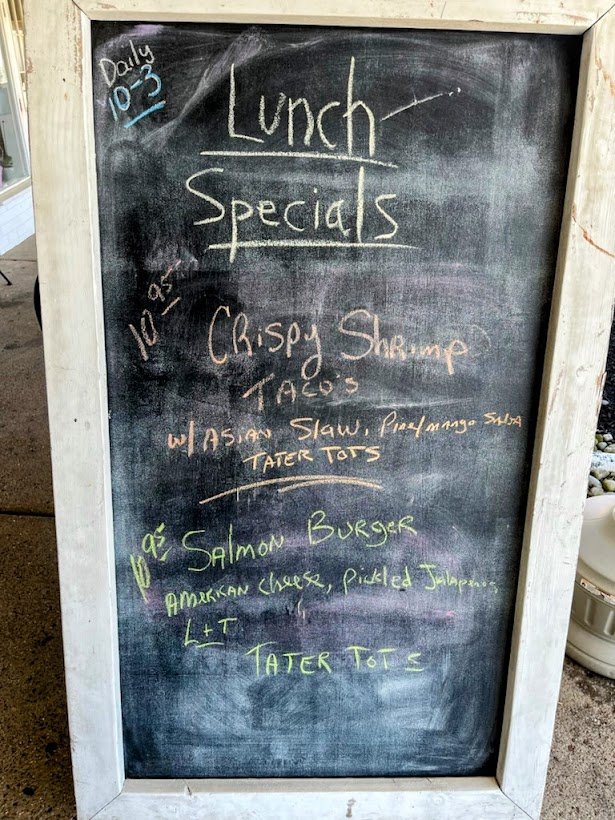 Daily
10-3
Lunch
Specials
10 95
Crispy Shrimp
Taco's
w/ Asian Slaw, Pine/mango Salsa
Tater Tots
10 95
Salmon Burger
American cheese, pickled Jalapenos,
L+T
Tater Tots